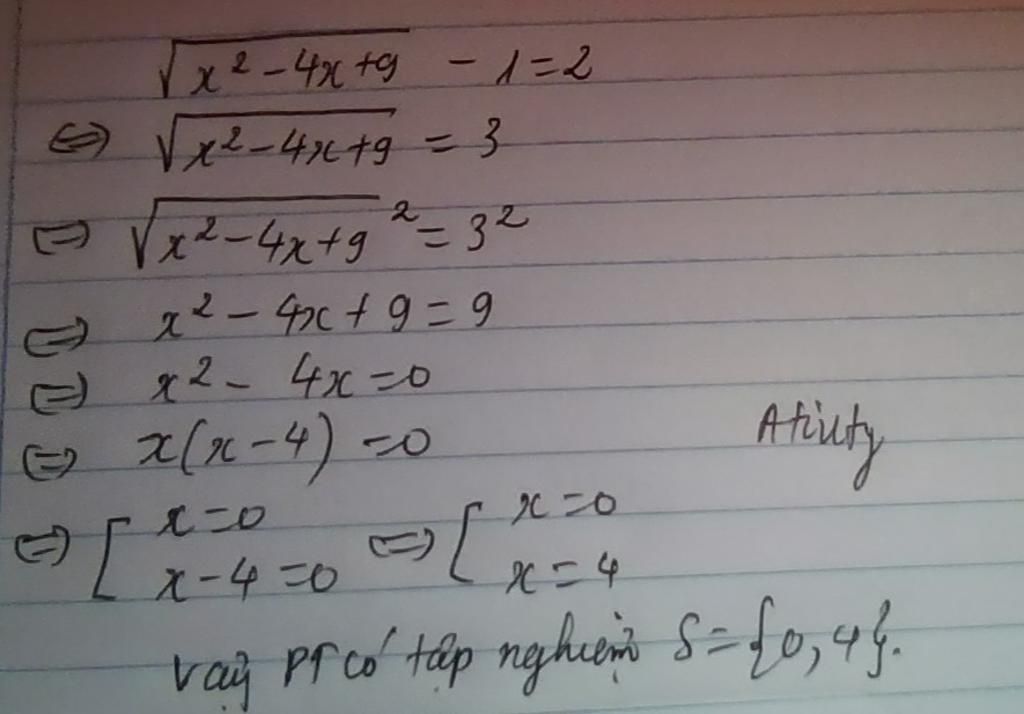 √(x² - 4x + 9) - 1 = 2
⇔ √(x² - 4x + 9) = 3
⇔ √(x² - 4x + 9)² = 3²
⇔ x² - 4x + 9 = 9
⇔ x² - 4x = 0
⇔ x(x - 4) = 0
Atiuty
⇔ [ x = 0 ⇔ [ x = 0
x - 4 = 0 x = 4
Vậy PT có tập nghiệm S = {0, 4}.